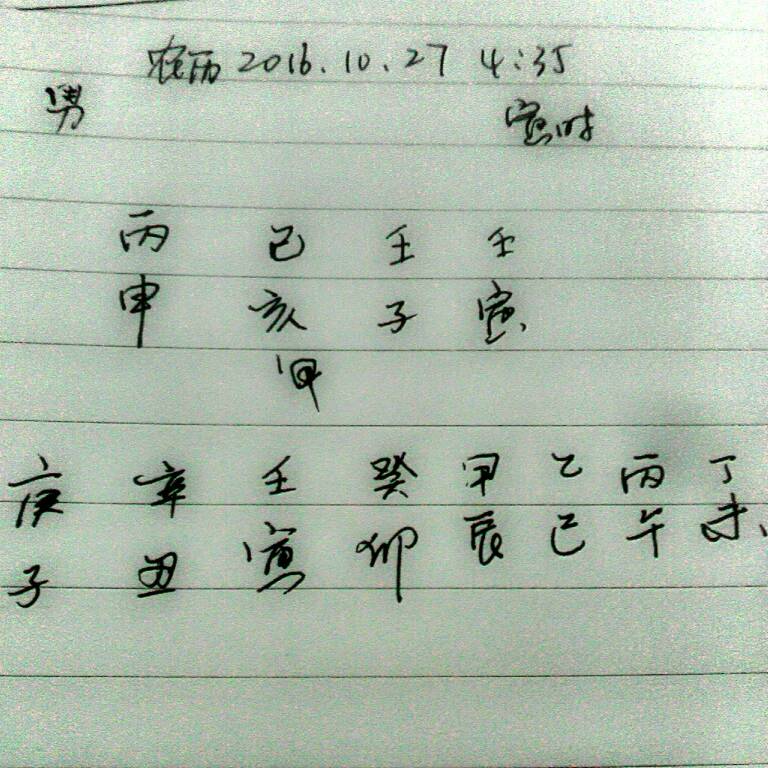 农历 2016.10.27 4:35
男 寅时
丙 己 壬 壬
申 亥 子 寅
甲
庚 辛 壬 癸 甲 乙 丙 丁
子 丑 寅 卯 辰 巳 午 未